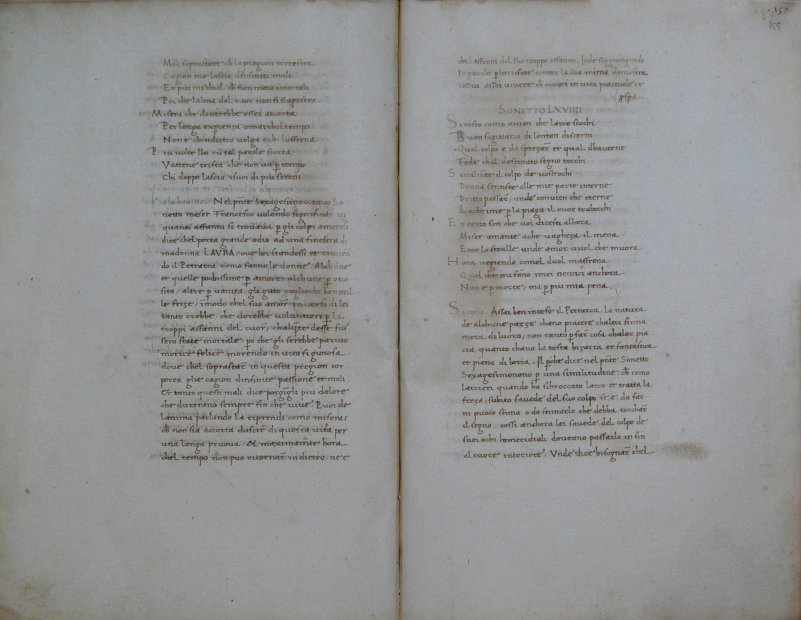 Mal soprastare i la pregion terrestra
Cagion me lassa dinfiniti mali
Et piu mi duol ch sien meco imortali
Poi che lalma dal cuor non si scapestra
Misera che doverebbe esser accorta
Per longa experienza omai chel tempo
Non e chindietro volga
Piu volte lho cu tal parole scorta
Vattene trista che non va p tempo
Chi doppo lassa i suoi di piu sereni
Nel pnte Sexagesimooctavo So
netto meser Francesco volendo significare in
quanti affanni si trovava p gli colpi amorosi
dice chel porta grande odio ad una finestra di
madonna LAVRA ove lei standossi et
do il Petrarca como fanno le donne Alchune
et quelle pochissime p amore alchune p ocio
sita, altre p vanita, gli gitto cogliochi ben mil
le frize, imodo chel suo amor in verso di lei
tanto crebbe, che dorebbe volontieri p li
troppi affanni del cuor, chalipte desse fus
sero state mortale po che gli serebbe partuto
morire felice morendo in vita si gioiosa
dove chel soprastar in questa pregion cor
porea gli e cagion dinfinite passione et mali
Et tanto questi mali dice porgiegli piu dolore
che durerano sempre fin che vive. Puoi de
lanima parlando la riprendi como misera
ch non sia accorta duscir di questa vita per
una longa pruova. Et maximamte hora
chel tempo non puo ritornar in dietro ne e
chi laffreni del suo troppo affanni. Inde soggiongendo
le parole piu usate contra la sua anima dimostra
et di
pspa.
SONETTO LXVIIII
Si tosto como avien che larco scochi
Buon sagittario di lontan discerni
Qual colpo e da sprezar et qual dhaverne
Fede chal destinato segno tocchi
Similmte il colpo de vostrochi
Donna sentiste alle mie parte interne
Dritto passar, unde convien che eterne
Lachrime p la piaga il cuore trabocchi
Et certo son che voi dicesti alhora
Miser amante a che vaghezza il mena
Ecco lo stralle unde amor vuol che muora
Hora vegiendo comel duol maffrena
Quel che mi fano imei nemici anchora
Non e p morte, ma p piu mia pena.
Si tosto. Assai ben intese il Petrarca. La natura
de alchune pazze chano piacere chaltri sinna
mora di luoro, non tanto p far cosa chaloi pia
cia quanto chano la testa bizarra et fantastica
et piena di boria. Il pche dice nel pnte Sonetto
Sexagesimonono p una similitudine, ch como
larcieri quando ha schroccato larco et tratta la
freza, subito savede del suo colpo se e da far
ni puoca stima o da stimarlo che debba toccher
il segno. cossi anchora lei savede del colpo de
suoi ochi homecidiali dovevano passarlo in fin
al cuore interiore. Unde dice bisognar chel